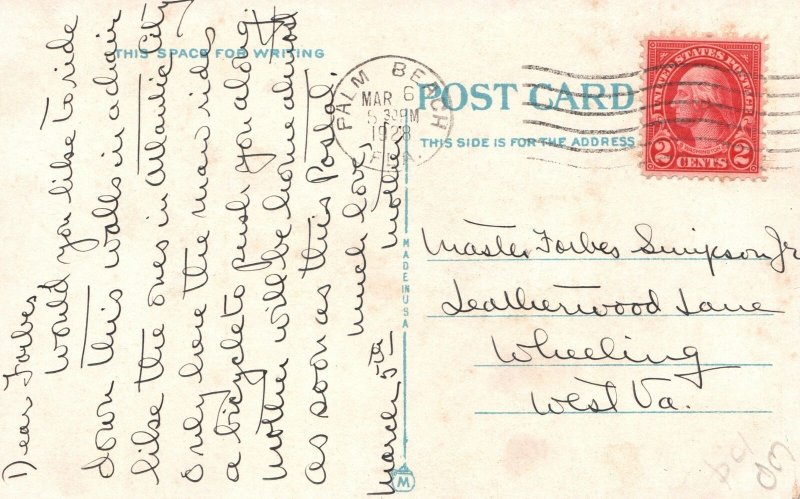 THIS SPACE FOR WRITING
Dear Forbes,
Would you like to ride
down this walks in a chair
like the ones in Atlantic City
Only here the man rides
a bicycle to push you along
Mother will be home almost
as soon as this Postal.
much love,
Mother
March 5th
PALM BEACH
MAR 6
5 30PM
1928
FLA.
POST CARD
THIS SIDE IS FOR THE ADDRESS
UNITED STATES POSTAGE
2 CENTS 2
MADE IN USA
M
Master Forbes Simpson Jr
Leatherwood Lane
Wheeling
West Va.